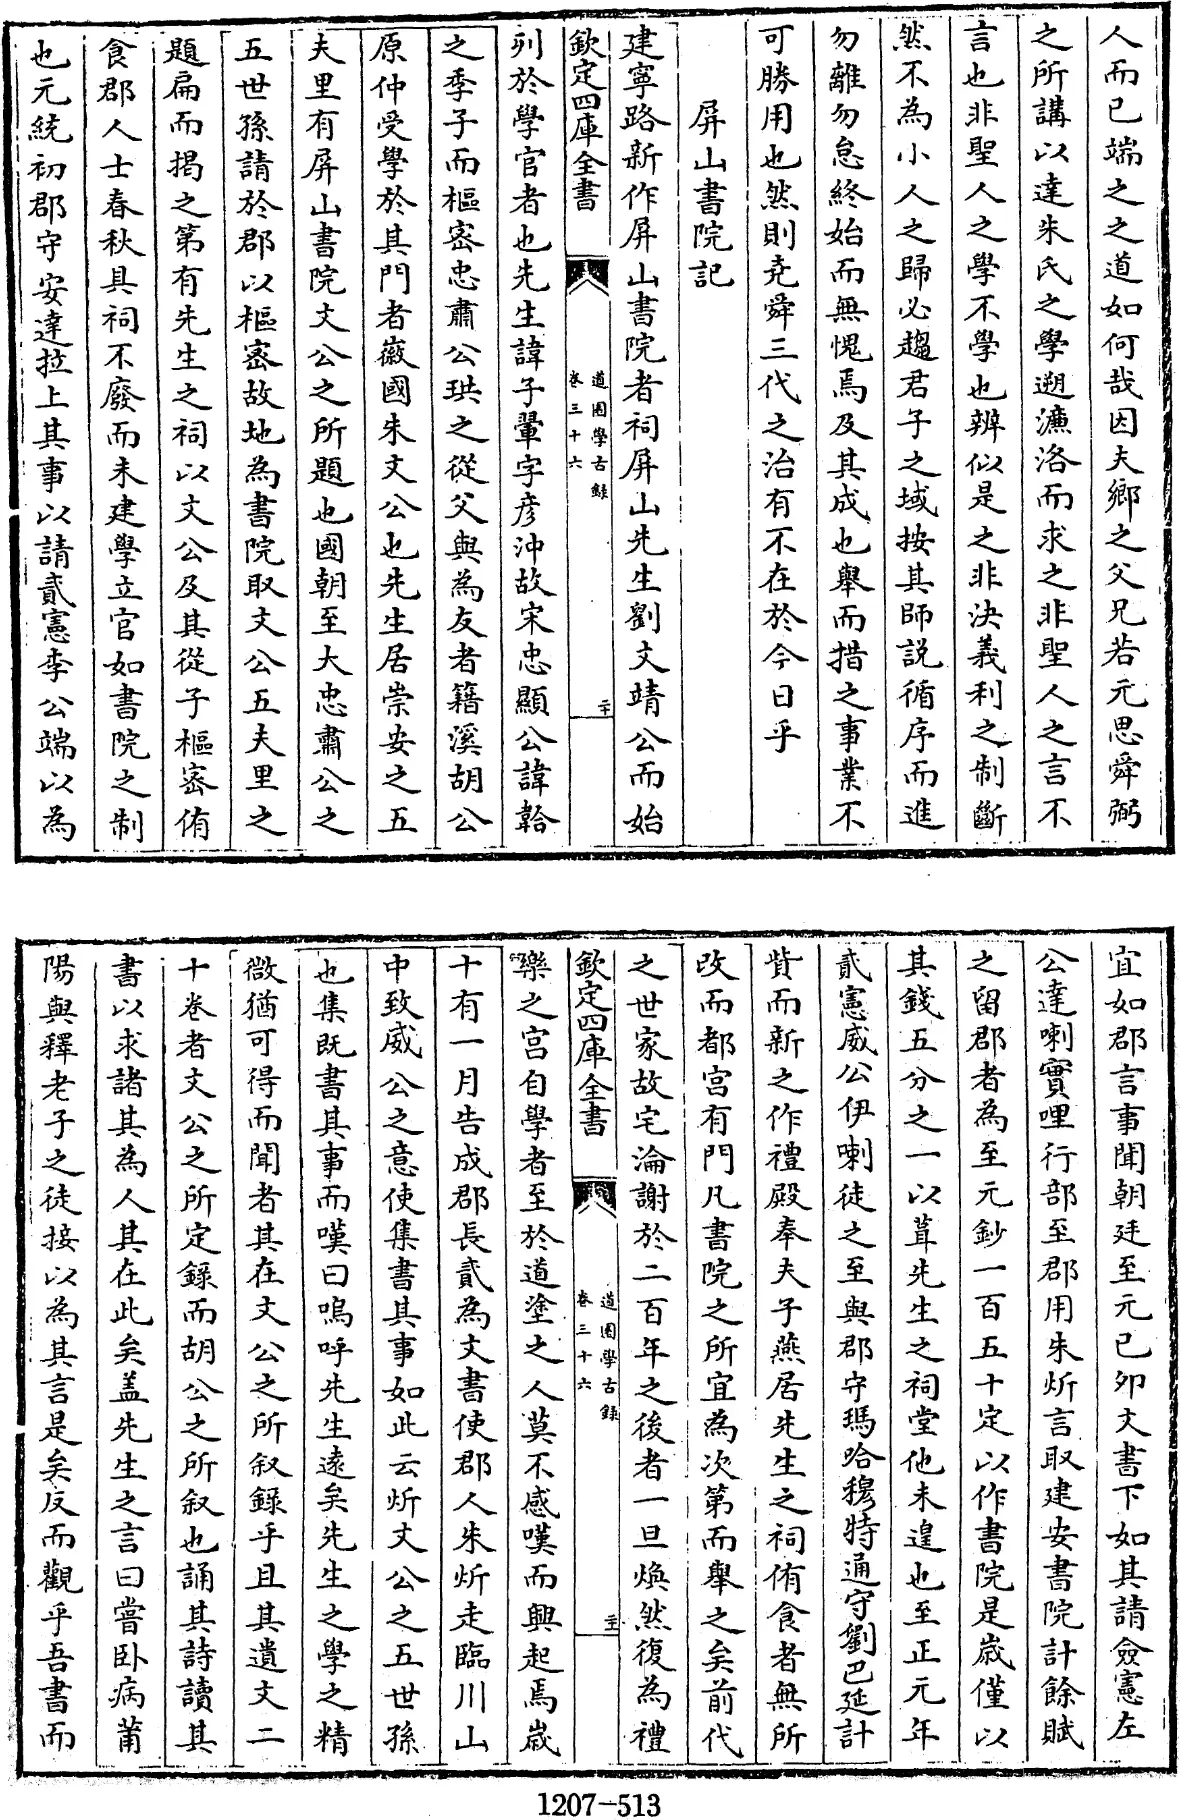 人而已端之之道如何哉因夫鄉之父兄若元思舜弼
之所講以達朱氏之學遡濂洛而求之非聖人之言不
言也非聖人之學不學也辨似是之非決義利之制斷
然不為小人之歸必趨君子之域按其師説循序而進
勿離勿怠終始而無愧焉及其成也舉而措之事業不
可勝用也然則堯舜三代之治有不在於今日乎
屏山書院記
建寧路新作屏山書院者祠屏山先生劉文靖公而始
欽定四庫全書
道園學古錄
卷三十六
二十
列於學官者也先生諱子翬字彦沖故宋忠顯公諱韐
之季子而樞密忠肅公珙之從父與為友者籍溪胡公
原仲受學於其門者徽國朱文公也先生居崇安之五
夫里有屏山書院文公之所題也國朝至大忠肅公之
五世孫請於郡以樞密故地為書院取文公五夫里之
題扁而揭之第有先生之祠以文公及其從子樞密侑
食郡人士春秋具祠不廢而未建學立官如書院之制
也元統初郡守安達拉上其事以請貳憲李公端以為
宜如郡言事聞朝廷至元己卯文書下如其請僉憲左
公達喇實哩行部至郡用朱炘言取建安書院計餘賦
之留郡者為至元鈔一百五十定以作書院是歳僅以
其錢五分之一以葺先生之祠堂他未遑也至正元年
貳憲威公伊喇徒之至與郡守瑪哈穆特通守劉巴延計
貲而新之作禮殿奉夫子燕居先生之祠侑食者無所
改而都宫有門凡書院之所宜為次第而舉之矣前代
之世家故宅淪謝於二百年之後者一旦煥然復為禮
欽定四庫全書
道園學古録
卷三十六
主
樂之宫自學者至於道塗之人莫不感嘆而興起焉歳
十有一月告成郡長貳為文書使郡人朱炘走臨川山
中致威公之意使集書其事如此云炘文公之五世孫
也集既書其事而嘆曰嗚呼先生逺矣先生之學之精
微猶可得而聞者其在文公之所叙錄乎且其遺文二
十卷者文公之所定錄而胡公之所叙也誦其詩讀其
書以求諸其為人其在此矣盖先生之言曰嘗臥病莆
陽與釋老子之徒接以為其言是矣反而觀乎吾書而
1207-513